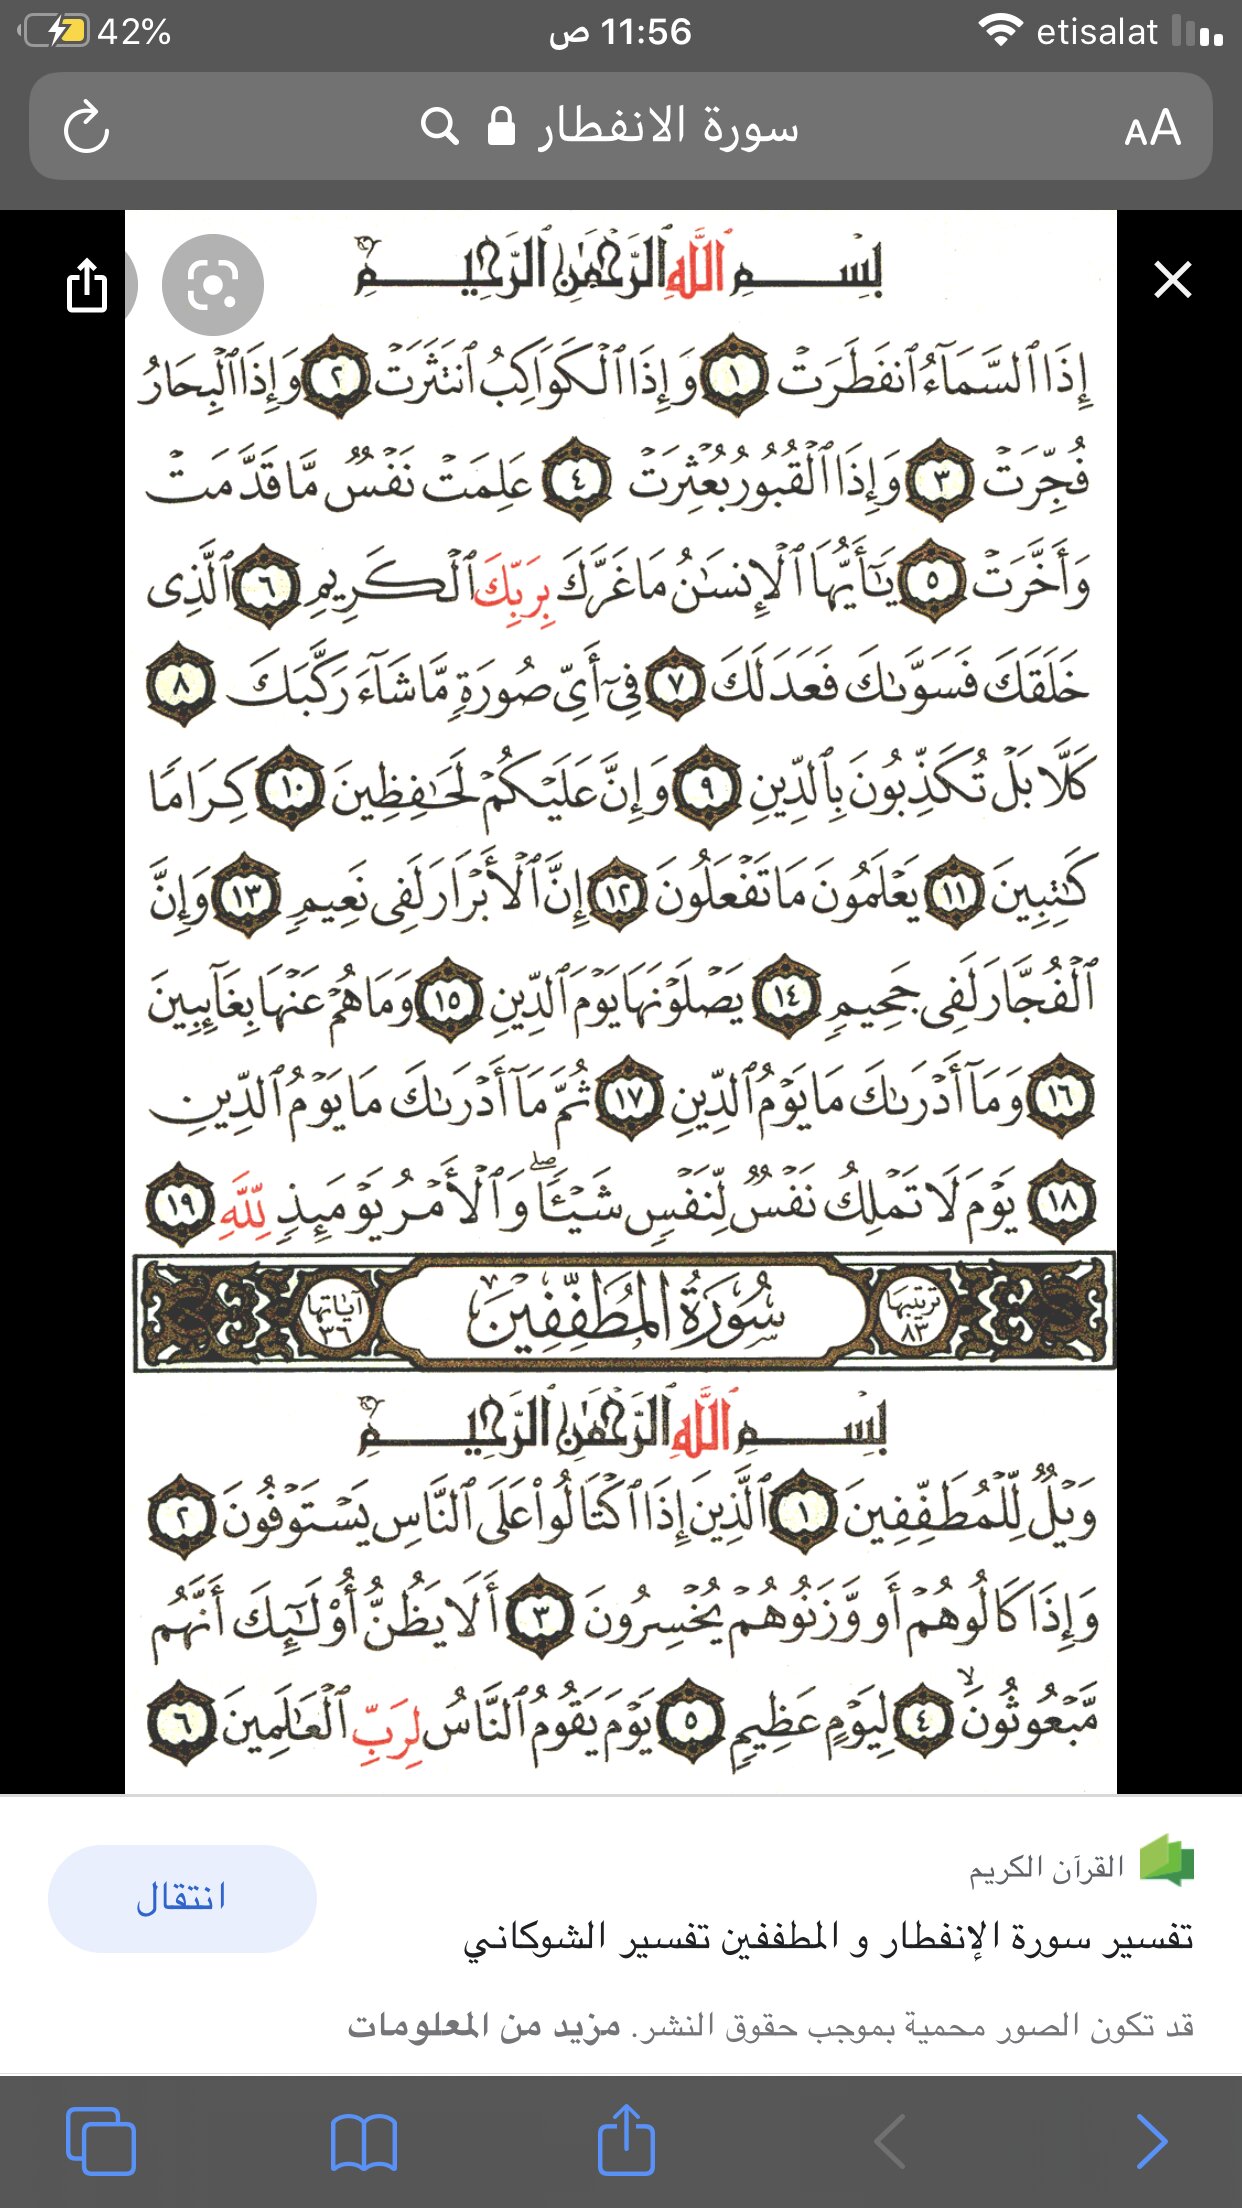 42%
11:56 ص
etisalat
سورة الانفطار
AA
بِسْمِ ٱللَّهِ ٱلرَّحْمَٰنِ ٱلرَّحِيمِ
إِذَا ٱلسَّمَآءُ ٱنفَطَرَتْ ١ وَإِذَا ٱلْكَوَاكِبُ ٱنتَثَرَتْ ٢ وَإِذَا ٱلْبِحَارُ
فُجِّرَتْ ٣ وَإِذَا ٱلْقُبُورُ بُعْثِرَتْ ٤ عَلِمَتْ نَفْسٌ مَّا قَدَّمَتْ
وَأَخَّرَتْ ٥ يَٰٓأَيُّهَا ٱلْإِنسَٰنُ مَا غَرَّكَ بِرَبِّكَ ٱلْكَرِيمِ ٦ ٱلَّذِى
خَلَقَكَ فَسَوَّىٰكَ فَعَدَلَكَ ٧ فِىٓ أَىِّ صُورَةٍ مَّا شَآءَ رَكَّبَكَ ٨
كَلَّا بَلْ تُكَذِّبُونَ بِٱلدِّينِ ٩ وَإِنَّ عَلَيْكُمْ لَحَٰفِظِينَ ١٠ كِرَامًا
كَٰتِبِينَ ١١ يَعْلَمُونَ مَا تَفْعَلُونَ ١٢ إِنَّ ٱلْأَبْرَارَ لَفِى نَعِيمٍ ١٣ وَإِنَّ
ٱلْفُجَّارَ لَفِى جَحِيمٍ ١٤ يَصْلَوْنَهَا يَوْمَ ٱلدِّينِ ١٥ وَمَا هُمْ عَنْهَا بِغَآئِبِينَ
١٦ وَمَآ أَدْرَىٰكَ مَا يَوْمُ ٱلدِّينِ ١٧ ثُمَّ مَآ أَدْرَىٰكَ مَا يَوْمُ ٱلدِّينِ
١٨ يَوْمَ لَا تَمْلِكُ نَفْسٌ لِّنَفْسٍ شَيْـًٔا ۖ وَٱلْأَمْرُ يَوْمَئِذٍ لِّلَّهِ ١٩
ترتيبها ٨٣ سُورَةُ المُطَفِّفِينَ آياتها ٣٦
بِسْمِ ٱللَّهِ ٱلرَّحْمَٰنِ ٱلرَّحِيمِ
وَيْلٌ لِّلْمُطَفِّفِينَ ١ ٱلَّذِينَ إِذَا ٱكْتَالُوا۟ عَلَى ٱلنَّاسِ يَسْتَوْفُونَ ٢
وَإِذَا كَالُوهُمْ أَو وَّزَنُوهُمْ يُخْسِرُونَ ٣ أَلَا يَظُنُّ أُو۟لَٰٓئِكَ أَنَّهُم
مَّبْعُوثُونَ ۙ ٤ لِيَوْمٍ عَظِيمٍ ٥ يَوْمَ يَقُومُ ٱلنَّاسُ لِرَبِّ ٱلْعَٰلَمِينَ ٦
القرآن الكريم
تفسير سورة الإنفطار و المطففين تفسير الشوكاني
انتقال
قد تكون الصور محمية بموجب حقوق النشر. مزيد من المعلومات